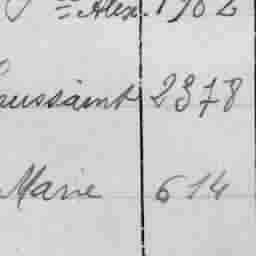 Alex. 1702
oussaint 2378
Marie 614